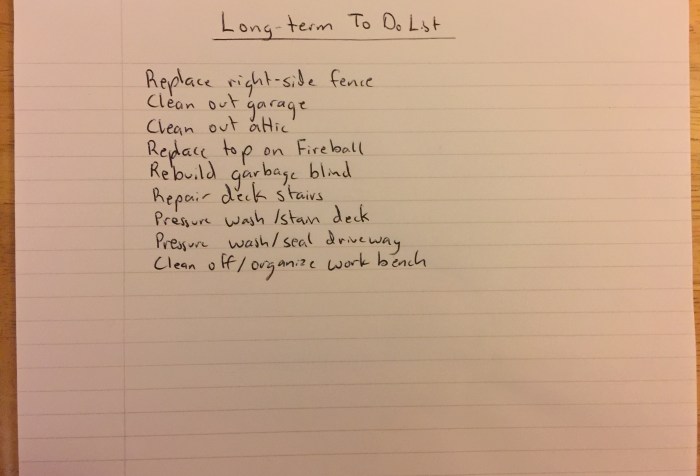 Long-term To Do List
Replace right-side fence
Clean out garage
Clean out attic
Replace top on Fireball
Rebuild garbage blind
Repair deck stairs
Pressure wash/stain deck
Pressure wash/seal driveway
Clean off/organize work bench